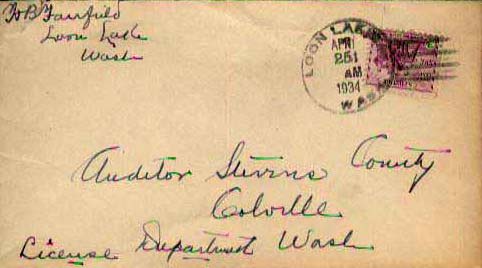 Fairfield
Loon Lake
Wash
LOON LAKE
APR
25
AM
1934
WASH
Auditor Stevens County
Colville
License Department Wash